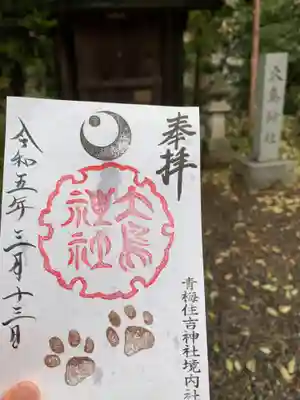 奉拝
大鳥
神社
令和五年 三月十三日
青梅住吉神社境内社
大鳥神社